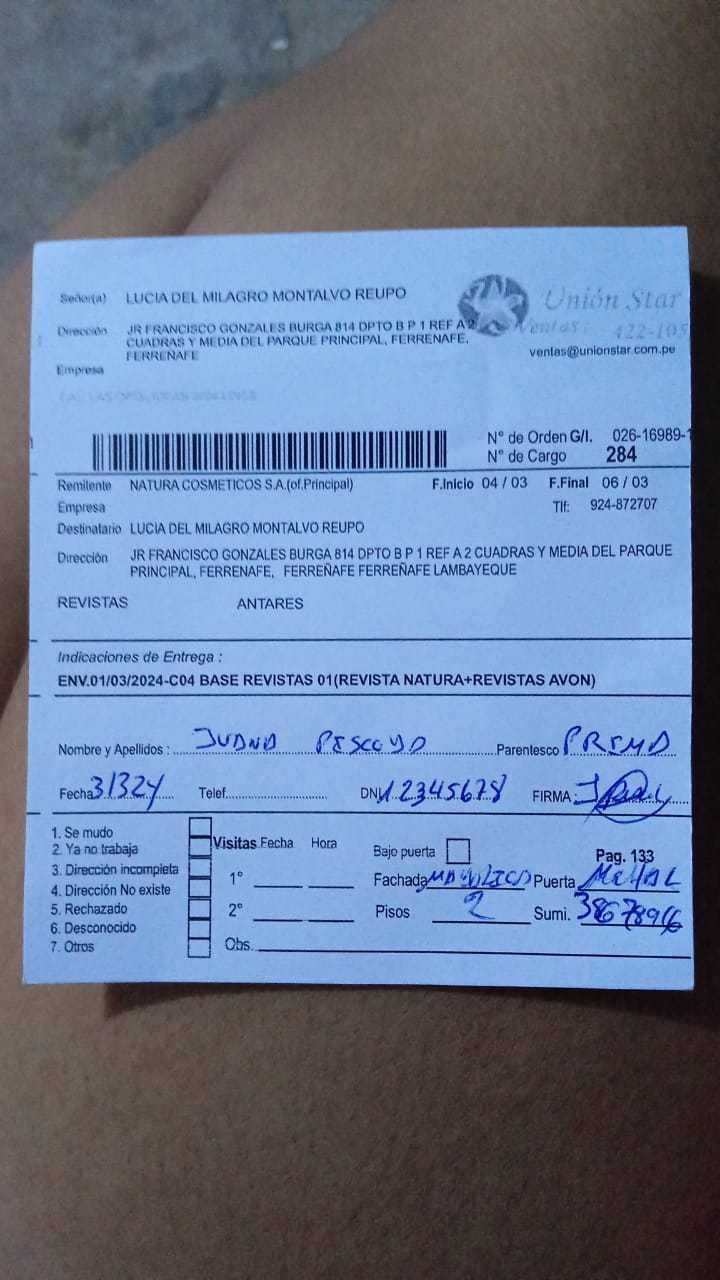 Señor(a) LUCIA DEL MILAGRO MONTALVO REUPO
Unión Star
Dirección JR FRANCISCO GONZALES BURGA 814 DPTO B P 1 REF A 2
CUADRAS Y MEDIA DEL PARQUE PRINCIPAL, FERRENAFE,
FERREÑAFE
Ventas: 422-105
ventas@unionstar.com.pe
Empresa
N° de Orden G/I. 026-16989-1
N° de Cargo 284
Remitente NATURA COSMETICOS S.A.(of.Principal) F.Inicio 04 / 03 F.Final 06 / 03
Empresa Tlf: 924-872707
Destinatario LUCIA DEL MILAGRO MONTALVO REUPO
Dirección JR FRANCISCO GONZALES BURGA 814 DPTO B P 1 REF A 2 CUADRAS Y MEDIA DEL PARQUE
PRINCIPAL, FERRENAFE, FERREÑAFE FERREÑAFE LAMBAYEQUE
REVISTAS ANTARES
Indicaciones de Entrega :
ENV.01/03/2024-C04 BASE REVISTAS 01(REVISTA NATURA+REVISTAS AVON)
Nombre y Apellidos : JUANA PESCOYO Parentesco PRIMA
Fecha 31324 Telef. DNI 12345678 FIRMA:
1. Se mudo
2. Ya no trabaja
3. Dirección incompleta
4. Dirección No existe
5. Rechazado
6. Desconocido
7. Otros
Visitas Fecha Hora
1°
2°
Obs.
Bajo puerta Pag. 133
Fachada Puerta METAL
Pisos 2 Sumi.